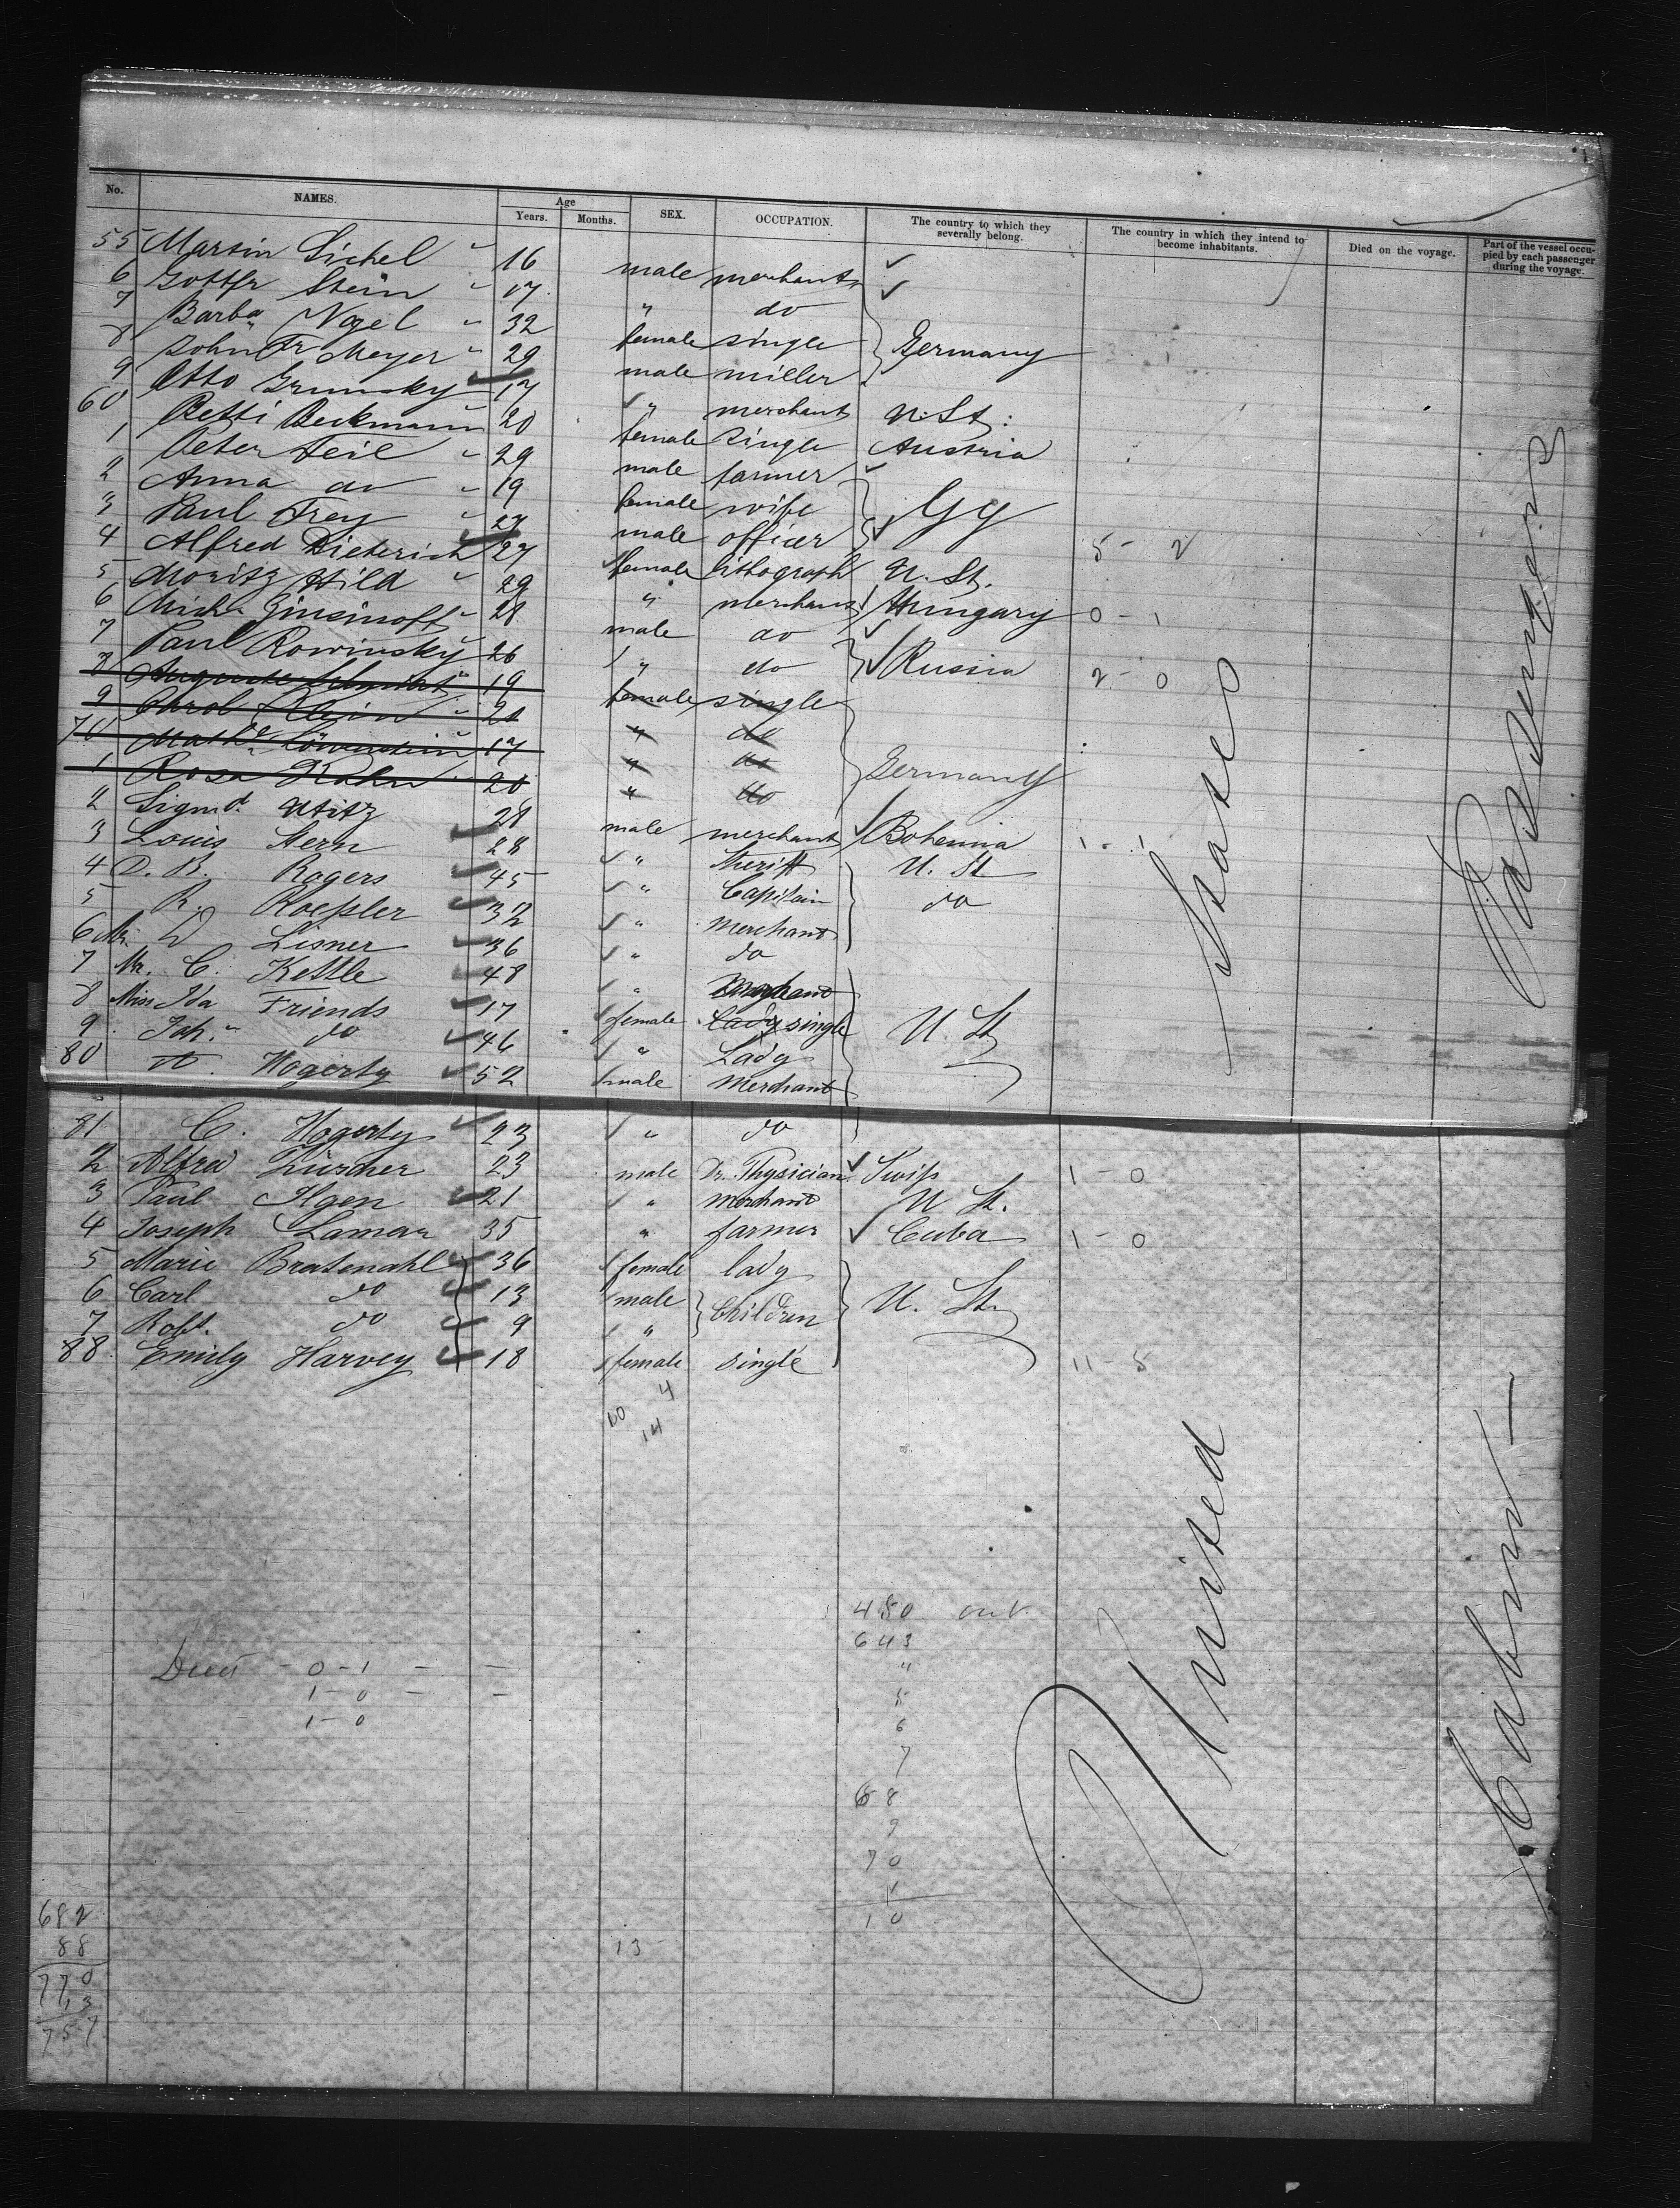 No. NAMES. Age Years. Months. SEX. OCCUPATION. The country to which they severally belong. The country in which they intend to become inhabitants. Died on the voyage. Part of the vessel occupied by each passenger during the voyage.
55 Martin Sichel " 16 male merchant
6 Gottfr Stein " 17 " do
7 Barba Vogel " 32 female single Germany
8 John Fr Meyer " 29 male miller
9 Otto Grunsky 17 " merchant U. St.
60 Betti Beckmann 20 female single Austria
1 Peter Feil " 29 male farmer
2 Anna do " 19 female wife Gy
3 Paul Frey " 27 male officer 5 - 2
4 Alfred Dieterich 27 female lithograph U. St.
5 Moritz Hild " 29 " merchant Hungary 0 - 1
6 Mich. " 28 male do
7 Paul Rowinsky 26 " do Russia 2 - 0
8 Auguste Schmidt 19 female single
9 Carol Klein " 21 " do
70 Mathe Löwenstein 17 " do Germany
1 Rosa Kahn 20 " do
2 Sigmd. Utitz 28 male merchant Bohemia 1 - 1
3 Louis Stern 28 " Sheriff U. St
4 D. B. Rogers 45 " Capitain do
5 R. Roeßler 32 " Merchant
6 Mr. D Lisner 36 " do
7 Mr. C. Kettle 48 "
8 Miss Ida Friends 17 female Lady single U. St
9 Joh. " do 46 " Lady
80 Hogerty 52 male Merchant
81 C. Hogerty 23 " do
2 Alfred Zürcher 23 male Dr. Physician Swiß 1 - 0
3 Paul Ilgen 21 " Merchant U St.
4 Joseph Lamar 35 " farmer Cuba 1 - 0
5 Marie Bratenahl 36 female lady
6 Carl do 13 male Children U. St.
7 Robt. do 9 "
88 Emily Harvey 18 female single 11 - 5
10 4
14
480 out
643
"
0 - 1 - -
1 - 0 - -
5
1 - 0
6
7
68
9
70
1
10
682
88
13
770
13
757
United States
Cabin Passengers